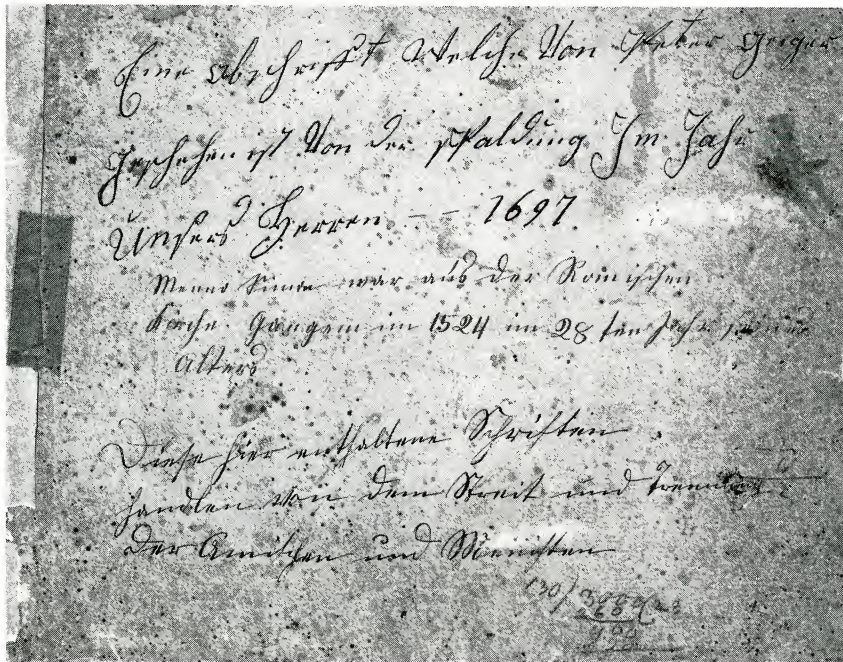 Eine Abschrifft Welche Von Peter Geiger
Geschehen ist Von der spaldung Im Jahr
Unsers Herren - - 1697
Menno Simon war aus der Römischen
Kirche Gangem im 1524 im 28 ten Jahr seines
Alters
Diese hier enthaltene Schriften
handlen von dem Streit und Trennung
der Amischen und Menisten
130